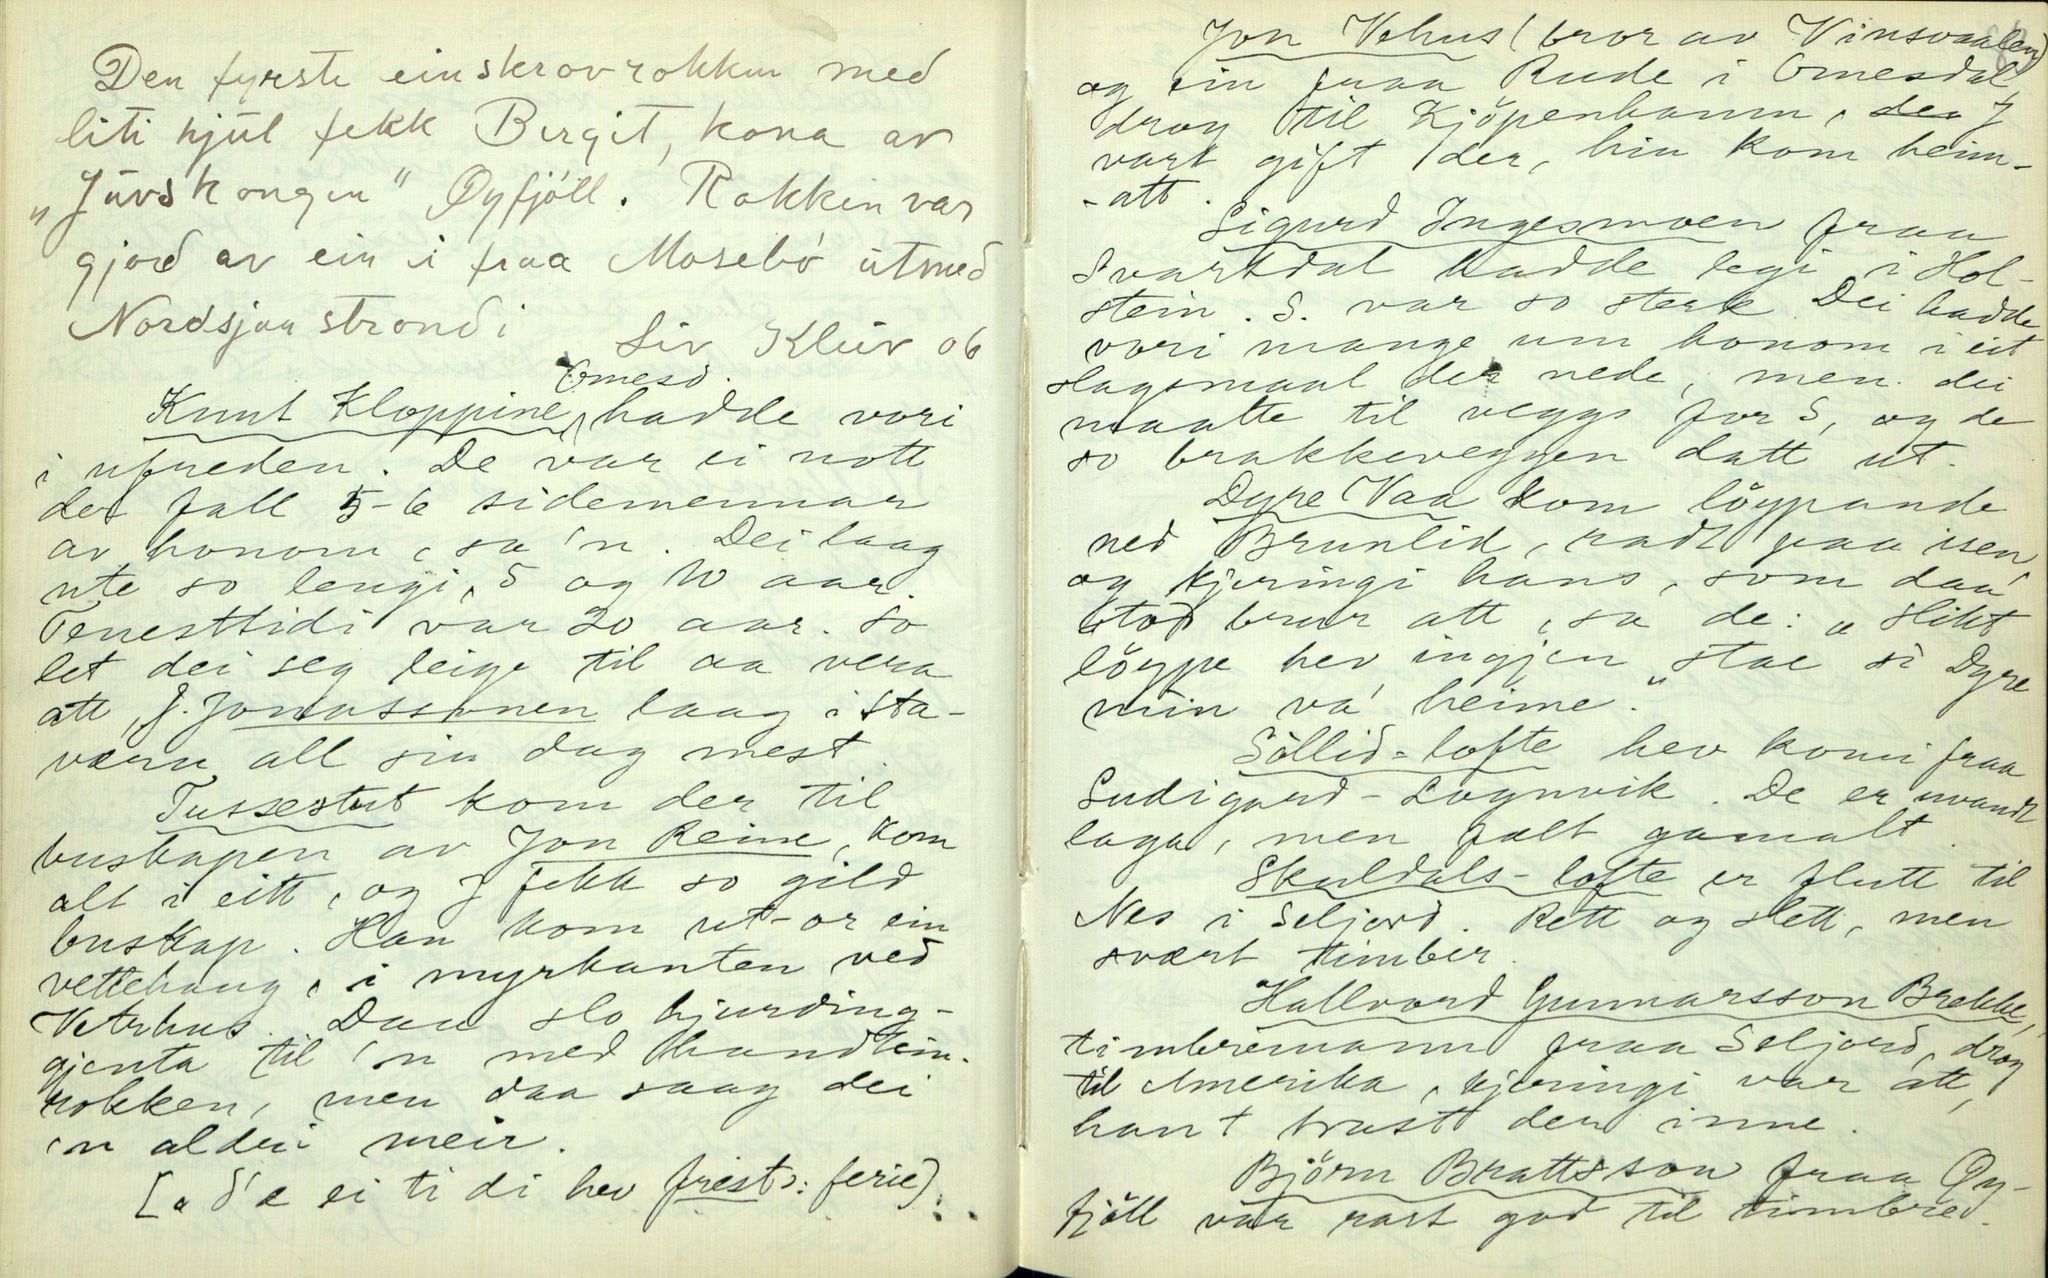 Den fyrste einskrovrokken med
liti hjul fekk Birgit, kona av
„Juvskongen" Øyfjöll. Rokkin var
gjord av ein i fraa Mosebö utmed
Nordsjøa strondi
Liv Kleiv 06
Omesd.
Knut Kloppine, hadde vori
i ufreden. De var ei nott
der fall 5-6 sidemennar
av honom, sa 'n. Dei laag
ute so lengi, 5 og 10 aar.
Tenesttidi var 20 aar. So
let dei seg leige til aa vera
att, J. Jonassonen laag i Sta-
værn all sin dag mest.
Tussestut kom der til
buskapen av Jon Reine, kom
alt i eitt, og J fekk so gild
buskap. Han kom ut-or ein
vettehaug, i myrkanten ved
Vetrhus. Daa slo hjurding-
gjenta til 'n med handtein-
rokken, men daa saag dei
'n aldri meir.
[„d'æ ei ti di hev frest": ferie]
Jon Vehus (bror av Vinsvaalen)
og ein fraa Rude i Omesdal,
drog til Kjöpenhamn, J
vart gift der, hin kom heim-
-att.
Sigurd Ingesmoen fraa
Svartdal hadde legi i Hol-
stein. S. var so sterk. Dei hadde
vori mange um honom i eit
slagsmaal der nede, men dei
maatte til veggs for S, og de
so brakkeveggen datt ut.
Dyre Vaa kom löypande
ned Brunlid, radt paa isen
og kjeringi hans, som daa
stod brur att, sa de: „Slikt
löype hev ingjen stae si Dyre
min va' heime."
Söllid-lofte hev komi fraa
Sudigard-Lognvik. De er uvandt
laga, men fælt gamalt.
Skuldals-lofte er flutt til
Nes i Seljord. Rett og slett, men
svært timber.
Hallvord Gunnarsson Brekke,
timbremann fraa Seljord, drog
til Amerika, kjeringi var att,
han t trast der inne.
Björn Brattsson fraa Øy-
fjöll var rart god til timbre-